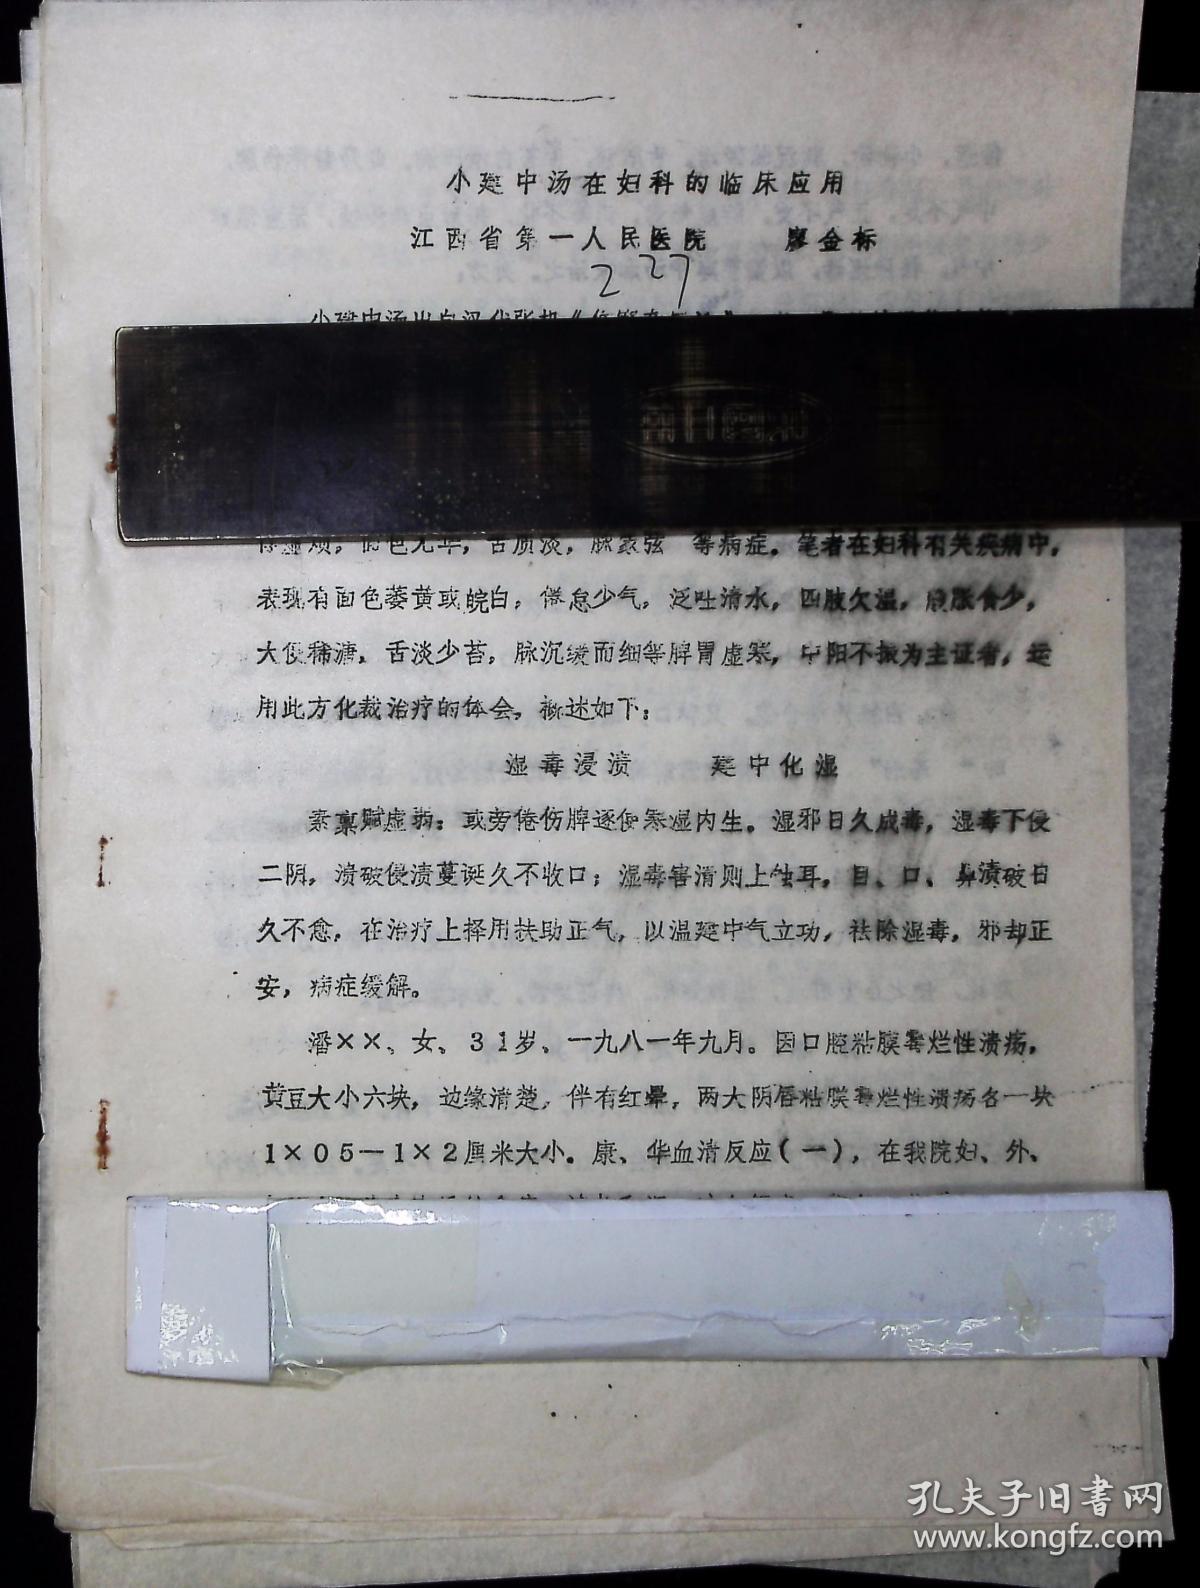 小建中汤在妇科的临床应用
江西省第一人民医院 廖金标
227
小建中汤出自汉代张机《伤寒杂
面色无华，舌质淡，脉 弦 等病症。笔者在妇科有关疾病中，
表现有面色萎黄或皖白，倦怠少气，泛吐清水，四肢欠温，腹胀食少，
大便稀溏，舌淡少苔，脉沉缓而细等脾胃虚寒，中阳不振为主证者，运
用此方化裁治疗的体会，概述如下：
湿毒浸渍 建中化湿
素禀赋虚弱；或劳倦伤脾逐使寒湿内生。湿邪日久成毒，湿毒下侵
二阴，溃破侵渍蔓诞久不收口；湿毒害清则上蚀耳，目、口、鼻溃破日
久不愈，在治疗上择用扶助正气，以温建中气立功，祛除湿毒，邪却正
安，病症缓解。
潘××、女、31岁、一九八一年九月。因口腔粘膜霉烂性溃疡，
黄豆大小六块，边缘清楚，伴有红晕，两大阴唇粘膜霉烂性溃疡各一块
1×05—1×2厘米大小。康、华血清反应（一），在我院妇、外、
孔夫子旧书网
www.kongfz.com